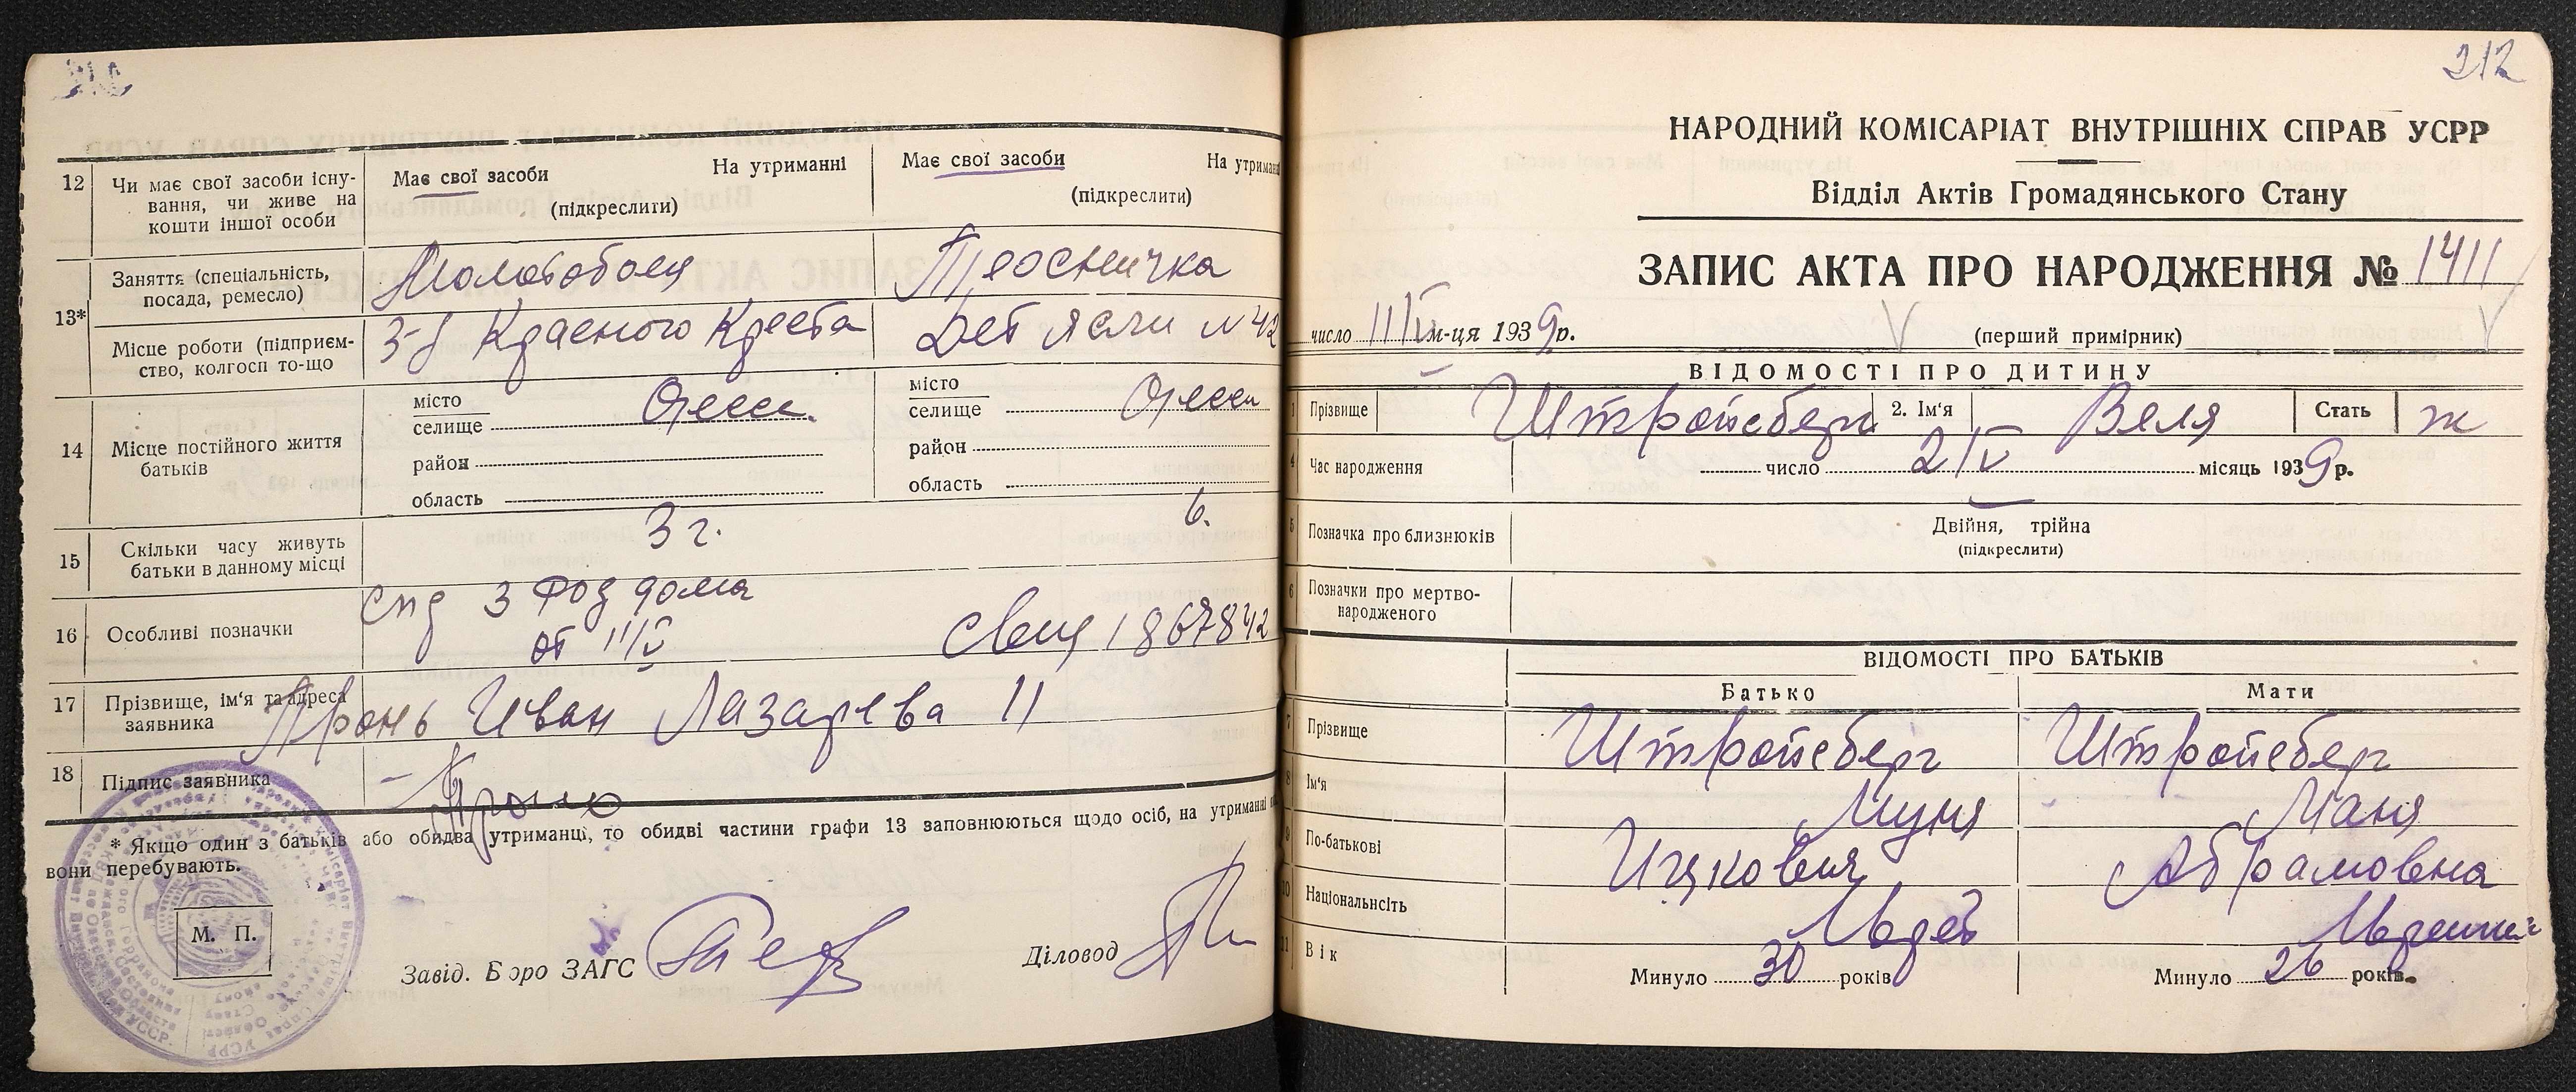 12 Чи має свої засоби існу-
вання, чи живе на
кошти іншої особи
Має свої засоби На утриманні
(підкреслити)
Має свої засоби На утриманні
(підкреслити)
13*
Заняття (спеціальність,
посада, ремесло)
Молотобоец
Місце роботи (підприєм-
ство, колгосп то-що
З-д Красного Креста
Дет ясли №42
14 Місце постійного життя
батьків
місто
селище Одесса
район
область
місто
селище Одесса
район
область
15 Скільки часу живуть
батьки в данному місці
3 г.
6.
16 Особливі позначки
спр 3 Род дома
от 11/IV
Свид 1867842
17 Прізвище, ім'я та адреса
заявника
Пронь Иван Лазарева 11
18 Підпис заявника
* Якщо один з батьків або обидва утриманці, то обидві частини графи 13 заповнюються щодо осіб, на утриманні
вони перебувають.
М. П.
Завід. Бюро ЗАГС
Діловод
212
НАРОДНИЙ КОМІСАРІАТ ВНУТРІШНІХ СПРАВ УСРР
Відділ Актів Громадянського Стану
ЗАПИС АКТА ПРО НАРОДЖЕННЯ № 1411
число 11/IV м-ця 1939р.
(перший примірник)
ВІДОМОСТІ ПРО ДИТИНУ
1 Прізвище Штройсберг 2. Ім'я Веля Стать ж
4 Час народження число 2/IV місяць 1939р.
5 Позначка про близнюків
Двійня, трійна
(підкреслити)
6 Позначки про мертво-
народженого
ВІДОМОСТІ ПРО БАТЬКІВ
Батько Мати
7 Прізвище Штройсберг Штройсберг
8 Ім'я Муня Маня
9 По-батькові Ицкович Абрамовна
10 Національнсіть
11 Вік Минуло 30 років Минуло 26 років.